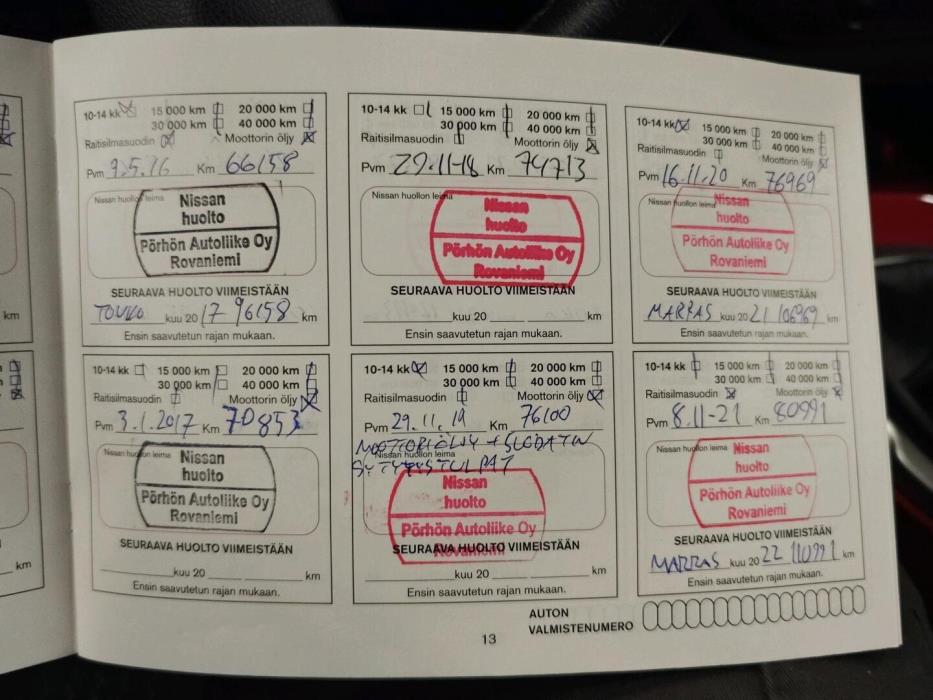 10-14 kk 15 000 km 20 000 km
30 000 km 40 000 km
Raitisilmasuodin Moottorin öljy
Pvm 3.5.16 Km 66158
Nissan huollon leima
Nissan
huolto
Pörhön Autoliike Oy
Rovaniemi
SEURAAVA HUOLTO VIIMEISTÄÄN
TOUKO kuu 20 17 96158 km
Ensin saavutetun rajan mukaan.
10-14 kk 15 000 km 20 000 km
30 000 km 40 000 km
Raitisilmasuodin Moottorin öljy
Pvm 29.11-18 Km 74713
Nissan huollon leima
Nissan
huolto
Pörhön Autoliike Oy
Rovaniemi
SEURAAVA HUOLTO VIIMEISTÄÄN
kuu 20 km
Ensin saavutetun rajan mukaan.
10-14 kk 15 000 km 20 000 km
30 000 km 40 000 km
Raitisilmasuodin Moottorin öljy
Pvm 16.11.20 Km 76969
Nissan huollon leima
Nissan
huolto
Pörhön Autoliike Oy
Rovaniemi
SEURAAVA HUOLTO VIIMEISTÄÄN
MARRAS kuu 20 21 106969 km
Ensin saavutetun rajan mukaan.
10-14 kk 15 000 km 20 000 km
30 000 km 40 000 km
Raitisilmasuodin Moottorin öljy
Pvm 3.1.2017 Km 70853
Nissan huollon leima
Nissan
huolto
Pörhön Autoliike Oy
Rovaniemi
SEURAAVA HUOLTO VIIMEISTÄÄN
kuu 20 km
Ensin saavutetun rajan mukaan.
10-14 kk 15 000 km 20 000 km
30 000 km 40 000 km
Raitisilmasuodin Moottorin öljy
Pvm 29.11.19 Km 76100
MOOTTORIÖLJY + SUODATIN
Nissan huollon leima
SYTYTYSTULPAT
Nissan
huolto
Pörhön Autoliike Oy
Rovaniemi
SEURAAVA HUOLTO VIIMEISTÄÄN
kuu 20 km
Ensin saavutetun rajan mukaan.
10-14 kk 15 000 km 20 000 km
30 000 km 40 000 km
Raitisilmasuodin Moottorin öljy
Pvm 8.11-21 Km 80991
Nissan huollon leima
Nissan
huolto
Pörhön Autoliike Oy
Rovaniemi
SEURAAVA HUOLTO VIIMEISTÄÄN
MARRAS kuu 20 22 110991 km
Ensin saavutetun rajan mukaan.
km
km
AUTON
VALMISTENUMERO
13